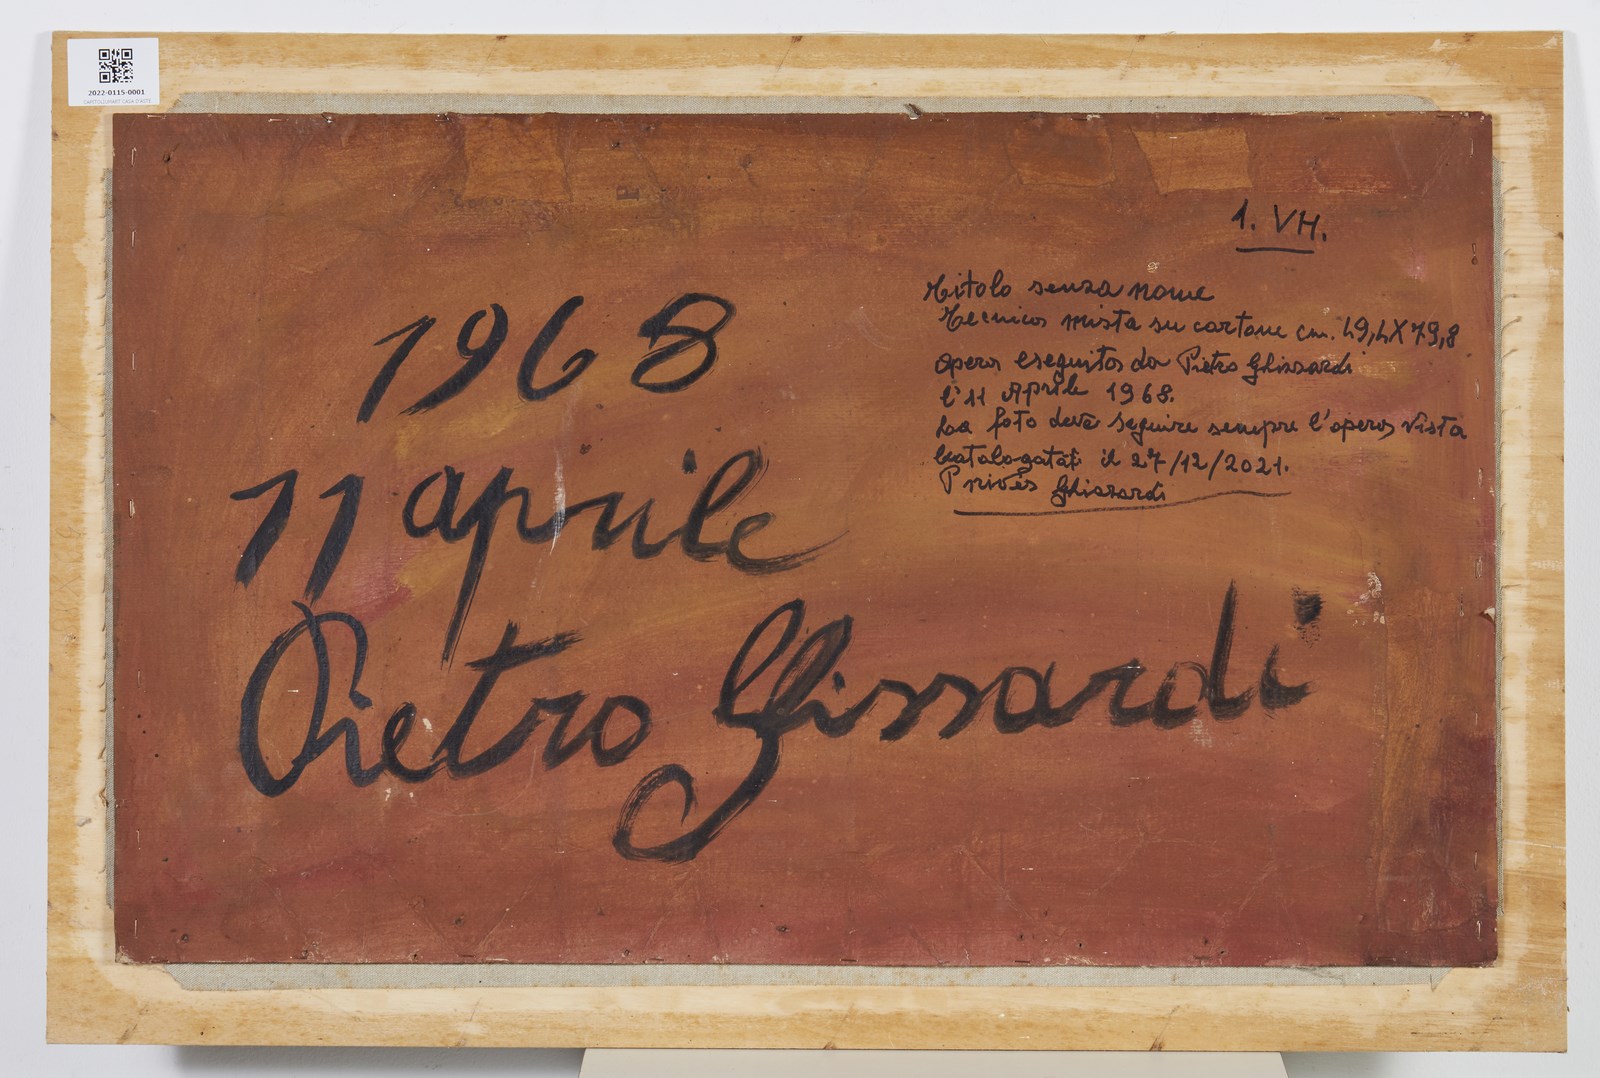 2022-0115-0001
CAPITOLIUMART CASA D'ASTE
1. VH.
Titolo senza nome
Tecnica mista su cartone cm. 49,4X79,8
Opera eseguita da Pietro Ghizzardi
l'11 Aprile 1968.
La foto deve seguire sempre l'opera Vista
Catalogata il 27/12/2021.
Ghizzardi
1968
11 aprile
Pietro Ghissardi